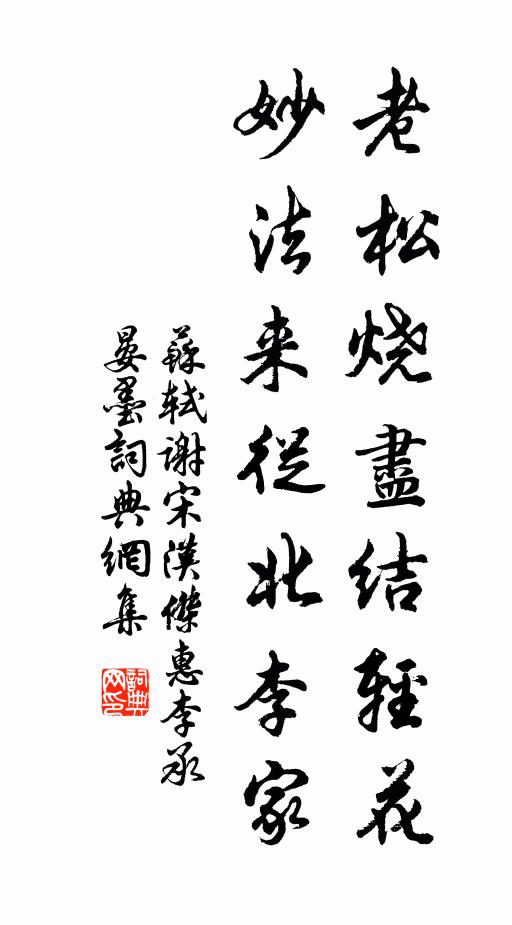 老松烧盡结輕花
妙法来從北李家
蘇轼谢宋漢傑惠李承
晏墨詞典網集
詞典网印